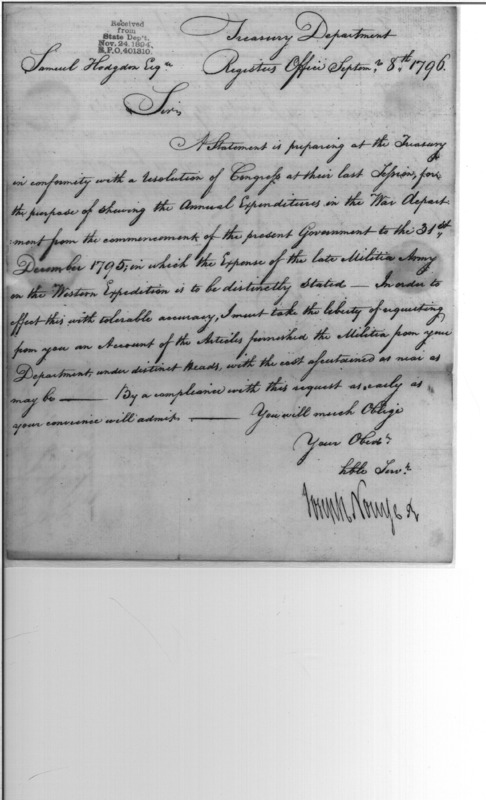 Received
from
State Dep't.
Nov. 24, 1894,
R.P.O, 401310.
Treasury Department
Samuel Hodgdon Esqr
Registers Office Septemr. 8th. 1796.
Sir,
A Statement is preparing at the Treasury
in conformity with a resolution of Congress at their last Session, for
the purpose of shewing the Annual Expenditures in the War depart
ment from the commencement of the present Government to the 31st.
December 1795, in which the Expense of the late Militia Army
on the Western Expedition is to be distinctly Stated — In order to
effect this with tolerable accuracy, I must take the liberty of requesting
from you an Account of the Articles furnished the Militia from your
Department, under distinct Heads, with the cost ascertained as near as
may be — By a compliance with this request as early as
your convenience will admit. — You will much Oblige
Your Obedt.
hble Servt.
Joseph Nourse R